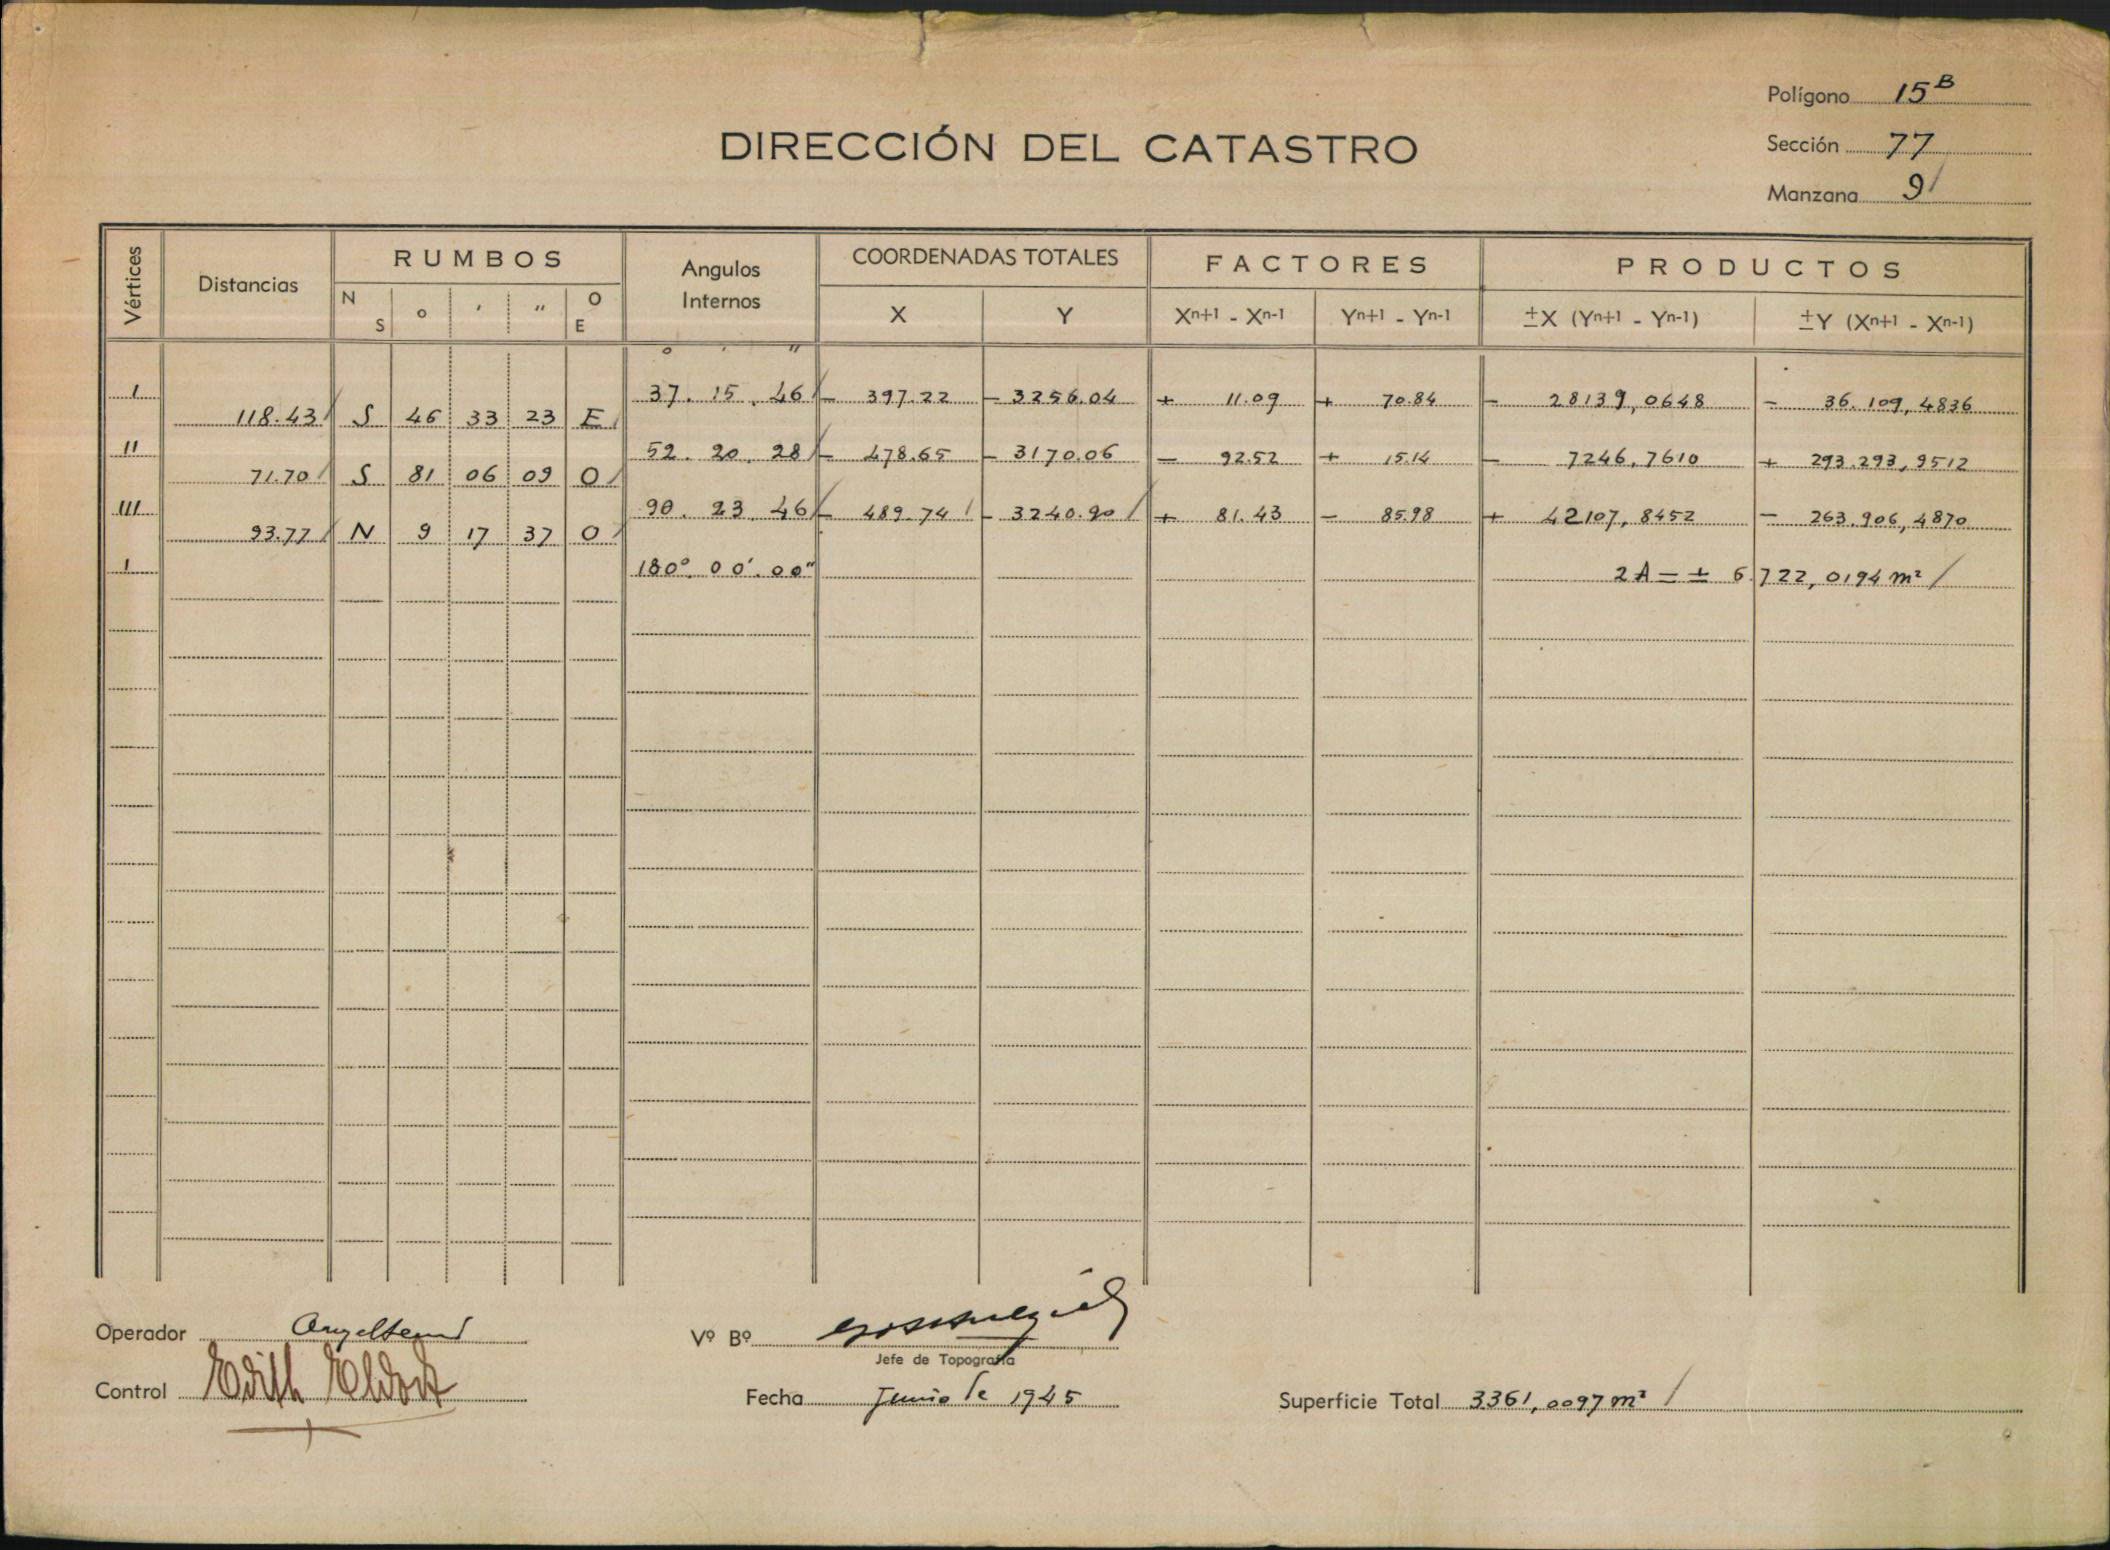 Polígono 15B
DIRECCIÓN DEL CATASTRO
Sección 77
Manzana 9
Vértices Distancias RUMBOS Angulos Internos COORDENADAS TOTALES FACTORES PRODUCTOS
N S ° ' " O E X Y Xn+1 - Xn-1 Yn+1 - Yn-1 ±X (Yn+1 - Yn-1) ±Y (Xn+1 - Xn-1)
° ' "
I 37. 15. 46 - 397.22 - 3256.04 + 11.09 + 70.84 - 28139,0648 - 36.109,4836
118.43 S 46 33 23 E
II 52. 20. 28 - 478.65 - 3170.06 - 92.52 + 15.14 - 7246,7610 + 293.293,9512
71.70 S 81 06 09 O
III 90. 23. 46 - 489.74 - 3240.90 + 81.43 - 85.98 + 42107,8452 - 263.906,4870
93.77 N 9 17 37 O
I 180°. 00'. 00" 2A = ± 6.722,0194 m²
Operador
Vº Bº
Jefe de Topografía
Control Edith
Fecha Junio de 1945
Superficie Total 3361,0097 m²